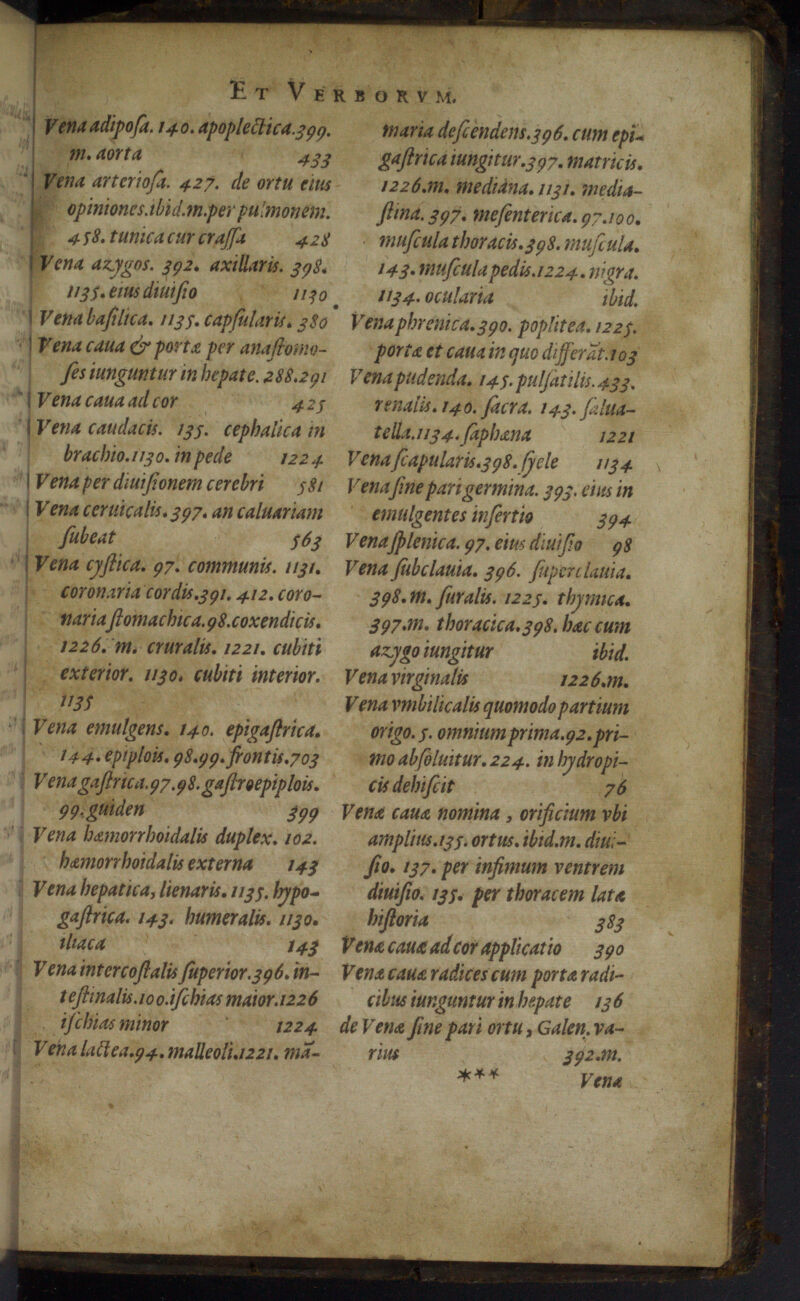 ET VERBORVM.
Vena adiposa. 140. apoplectica. 399.
m. aorta 433
Vena arteriosa. 427. de ortu eius
opiniones. ibid. m. per pulmonem.
458. tunica cur crassa 428
Vena azygos. 392. axillaris. 398.
1135. eius diuisio 1130
Vena basilica. 1135. capsularis. 380
Vena caua & portæ per anastomo-
ses iunguntur in hepate. 288. 291
Vena caua ad cor 425
Vena caudacis. 135. cephalica in
brachio. 1130. in pede 1224
Vena per diuisionem cerebri 581
Vena ceruicalis. 397. an caluariam
subeat 563
Vena cystica. 97. communis. 1131.
coronaria cordis. 391. 412. coro-
naria stomachica. 98. coxendicis.
1226. m. cruralis. 1221. cubiti
exterior. 1130. cubiti interior.
1135
Vena emulgens. 140. epigastrica.
144. epiplois. 98. 99. frontis. 703
Vena gastrica. 97. 98. gastroepiplois.
99. guiden 399
Vena hæmorrhoidalis duplex. 102.
hæmorrhoidalis externa 143
Vena hepatica, lienaris. 1135. hypo-
gastrica. 143. humeralis. 1130.
iliaca 143
Vena intercostalis superior. 396. in-
testinalis. 100. ischias maior. 1226
ischias minor 1224
Vena lactea. 94. malleoli. 1221. ma-
maria descendens. 396. cum epi-
gastrica iungitur. 397. matricis.
1226. m. mediana. 1131. media-
stina. 397. mesenterica. 97. 100.
muscula thoracis. 398. muscula.
143. muscula pedis. 1224. nigra.
1134. ocularia ibid.
Vena phrenica. 390. poplitea. 1225.
portæ et caua in quo differāt. 103
Vena pudenda. 145. pulsatilis. 433.
renalis. 140. sacra. 143. salua-
tella. 1134. saphæna 1221
Vena scapularis. 398. syele 1134
Vena sine pari germina. 393. eius in
emulgentes insertio 394
Vena splenica. 97. eius diuisio 98
Vena subclauia. 396. superclauia.
398. m. suralis. 1225. thymica.
397. m. thoracica. 398. hæc cum
azygo iungitur ibid.
Vena virginalis 1226. m.
Vena vmbilicalis quomodo partium
origo. 5. omnium prima. 92. pri-
mo absoluitur. 224. in hydropi-
cis dehiscit 76
Venæ cauæ nomina, orificium vbi
amplius. 135. ortus. ibid. m. diui-
sio. 137. per infimum ventrem
diuisio. 135. per thoracem lata
historia 383
Venæ cauæ ad cor applicatio 390
Venæ cauæ radices cum portæ radi-
cibus iunguntur in hepate 136
de Venæ sine pari ortu, Galen. va-
rius 392. m.
*** Venæ